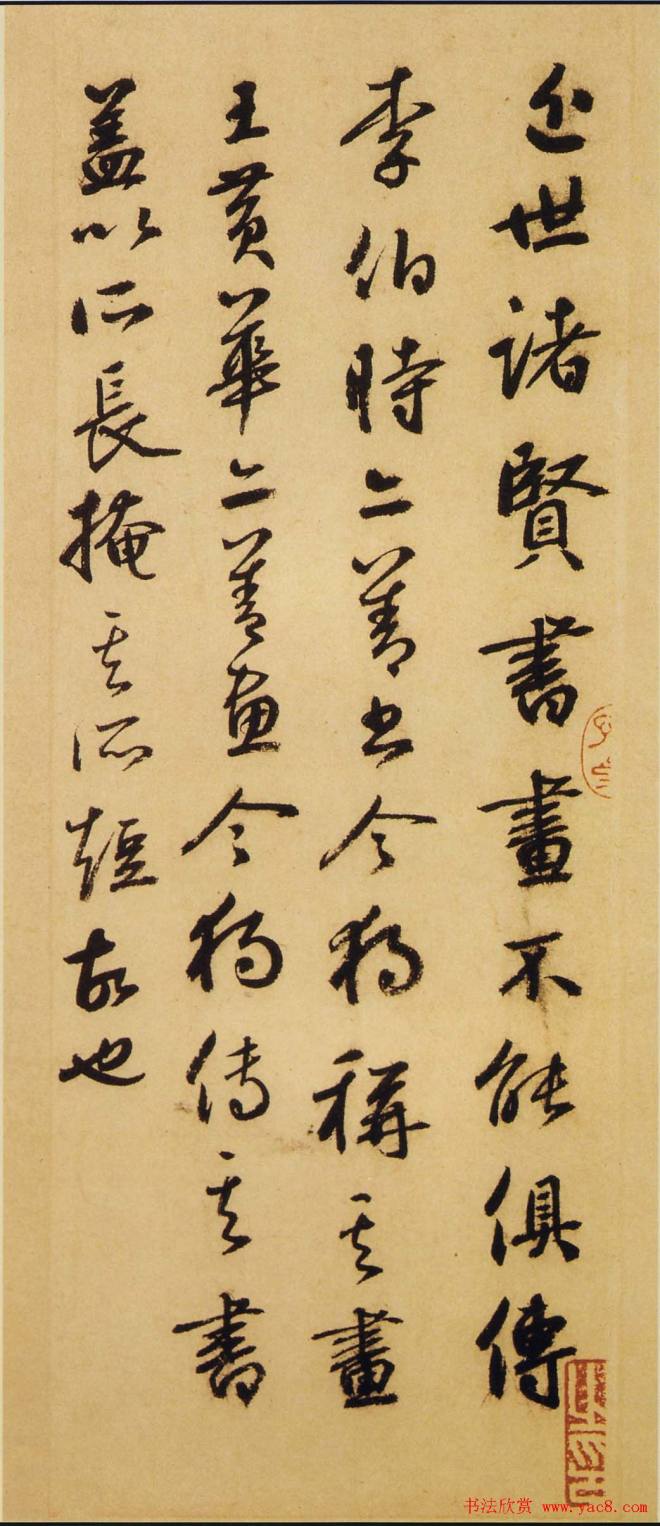 近世諸賢書畫不能俱傳
李伯時亦善书今独稱其畫
王黄華亦善画今独传其書
蓋以所長掩其所短故也
书法欣赏 www.yac8.com